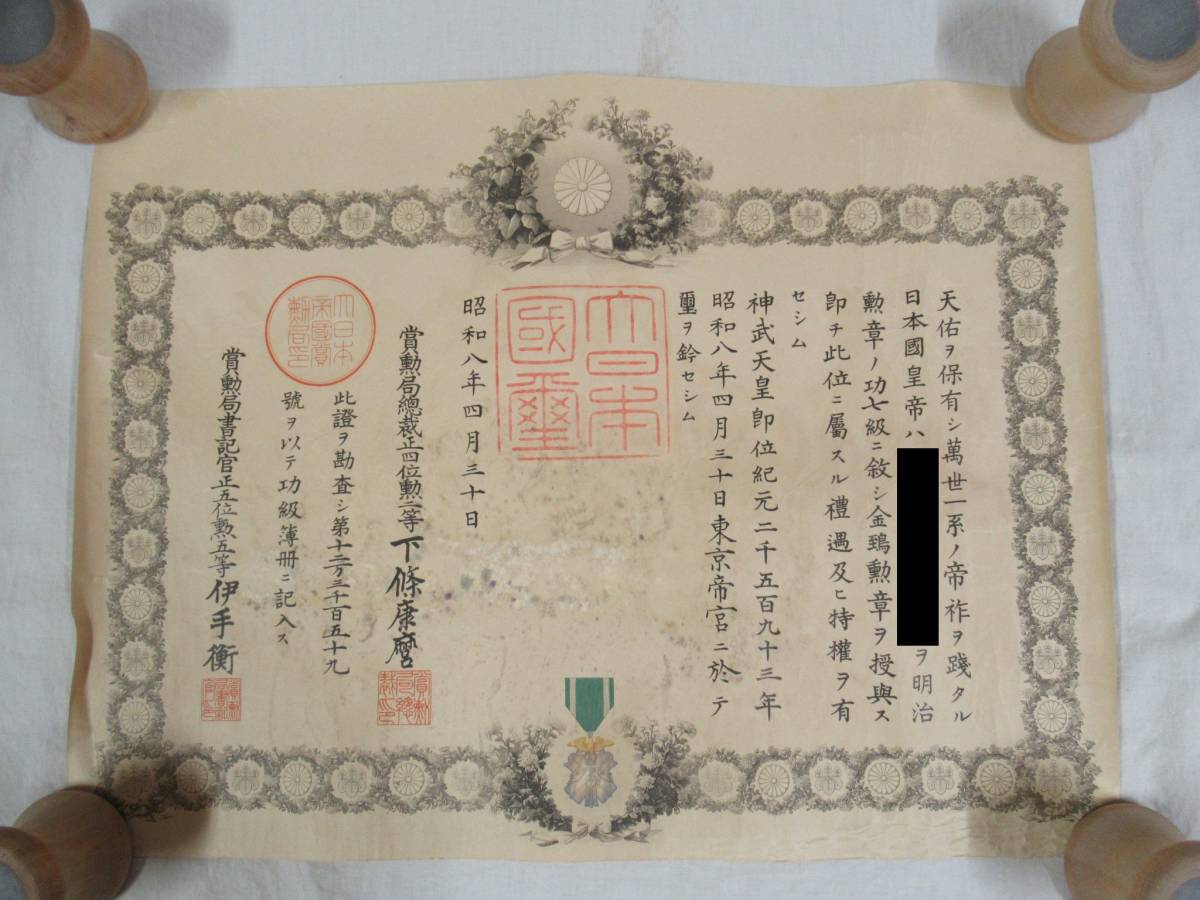 天佑ヲ保有シ萬世一系ノ帝祚ヲ踐タル
日本國皇帝ハ
ヲ明治
勲章ノ功七級ニ敘シ金鵄勲章ヲ授與ス
卽チ此位ニ屬スル禮遇及ヒ特權ヲ有
セシム
神武天皇卽位紀元二千五百九十三年
昭和八年四月三十日東京帝宮ニ於テ
璽ヲ鈐セシム
大日本
國璽
昭和八年四月三十日
賞勲局總裁正四位勲二等下條康麿
大日本
帝國賞
勲局印
此證ヲ勘査シ第十二万三千百五十九
號ヲ以テ功級簿冊ニ記入ス
賞勲局書記官正五位勲五等伊手衡